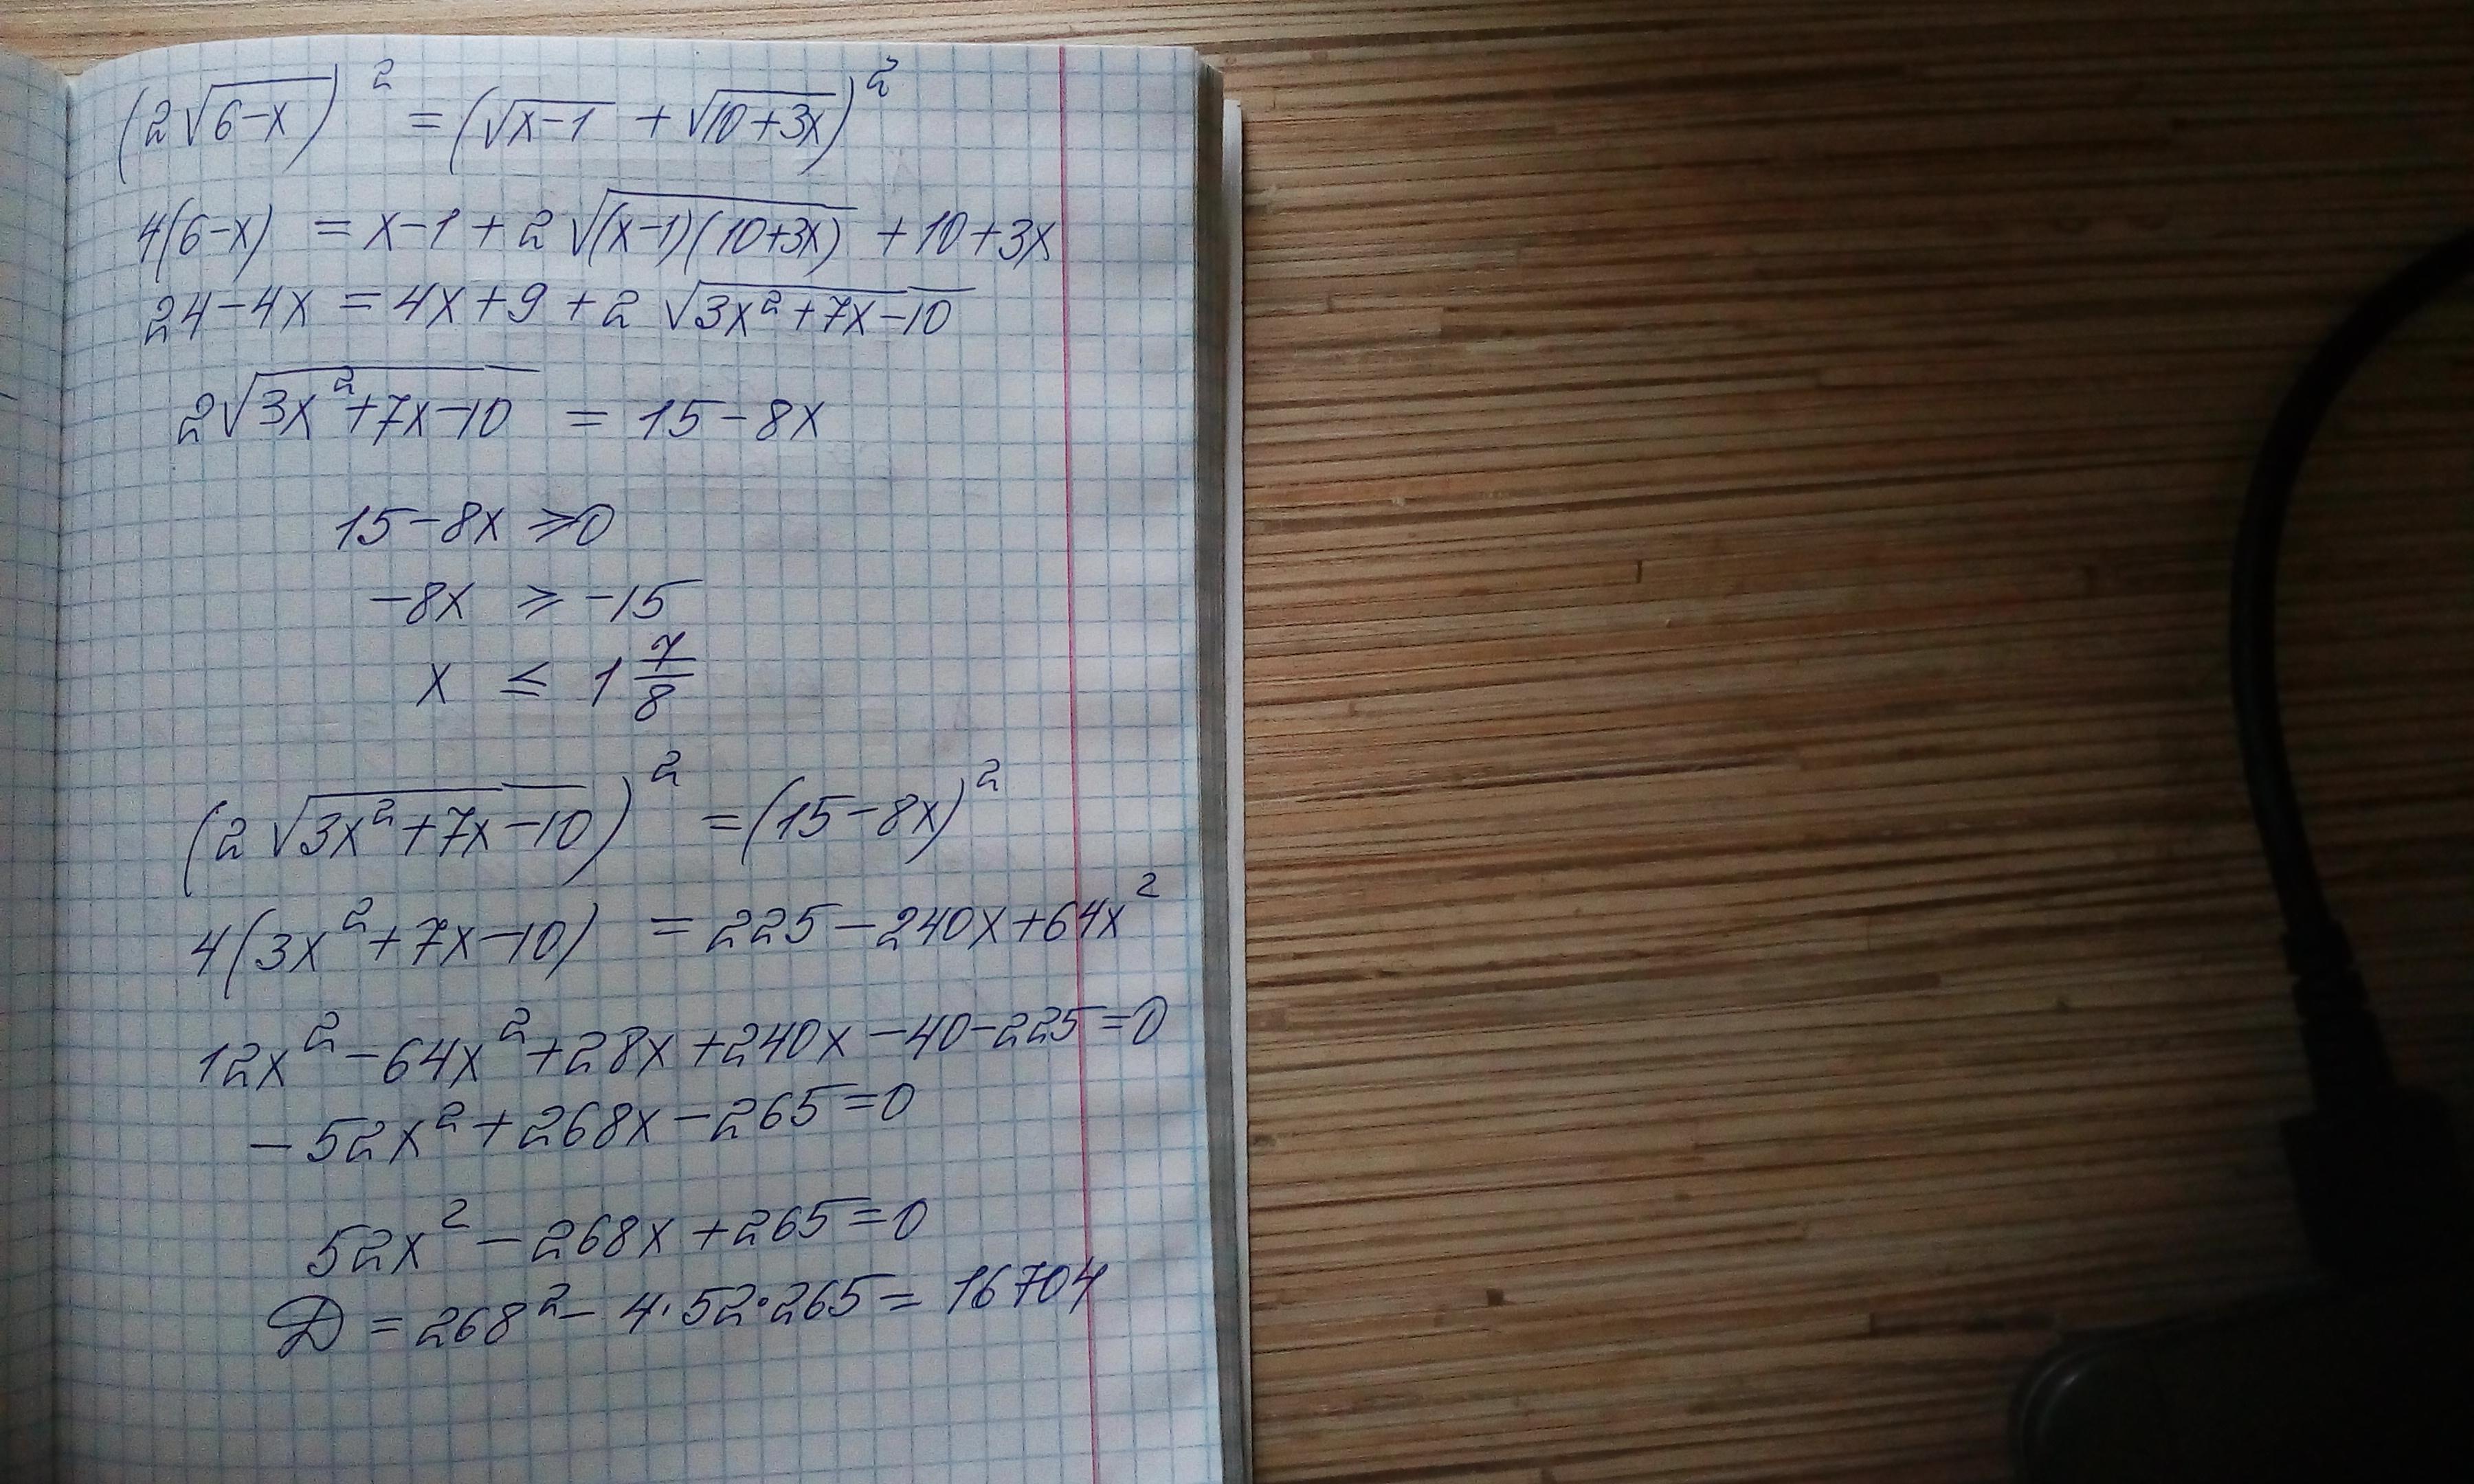 (2√(6-x))² = (√(x-1) + √(10+3x))²
4(6-x) = x-1+2√((x-1)(10+3x)) +10+3x
24-4x = 4x+9+2√(3x²+7x-10)
2√(3x²+7x-10) = 15-8x
15-8x ≥0
-8x ≥ -15
x ≤ 1 7/8
(2√(3x²+7x-10))² =(15-8x)²
4(3x²+7x-10) = 225-240x+64x²
12x²-64x²+28x+240x-40-225=0
-52x²+268x-265=0
52x²-268x+265=0
D = 268²- 4·52·265= 16704